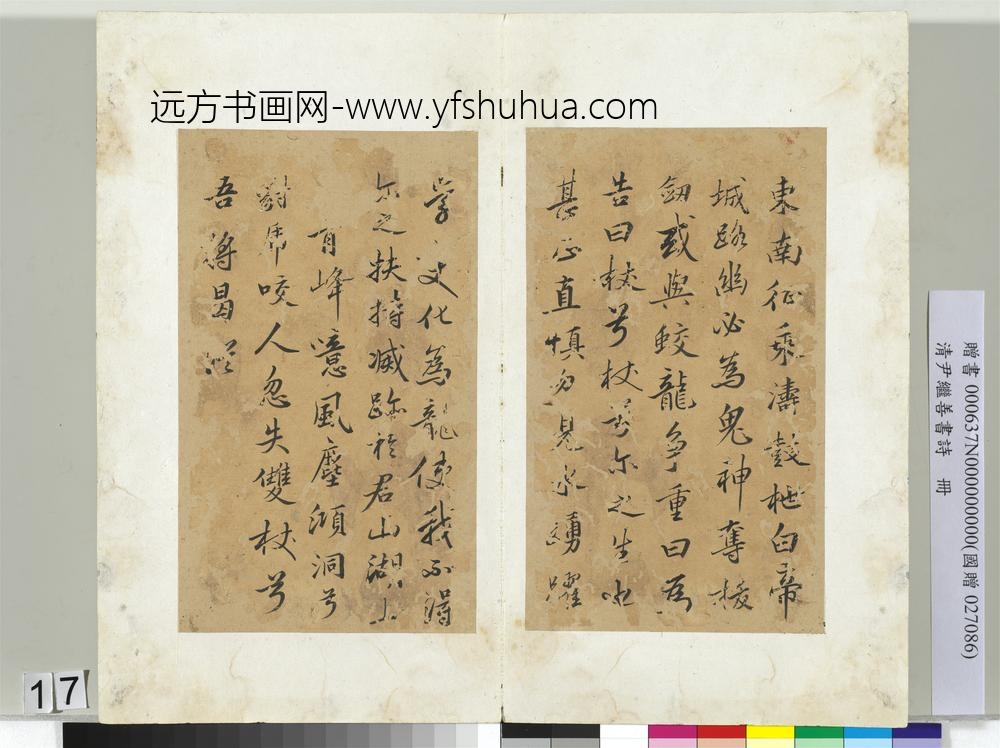 远方书画网-www.yfshuhua.com
東南征乘濤鼓枻白帝
城路幽必為鬼神奪拔
劍或與蛟龍爭重曰為
告曰杖兮杖兮尔之生也
甚正直慎勿見水踴躍
學變化為龍使我不得
尔之扶持滅跡於君山湖上
青峰噫風塵澒洞兮
豺虎咬人忽失雙杖兮
吾將曷從
贈書 000637N000000000(國贈 027086)
清尹繼善書詩 冊
17